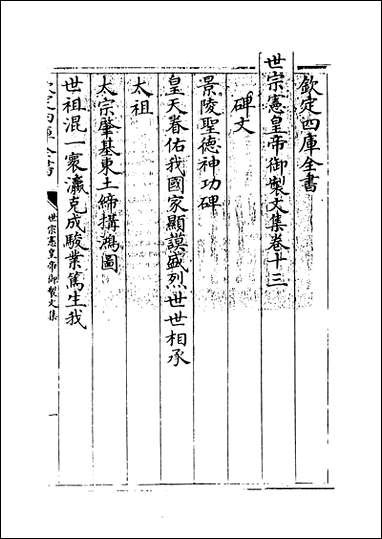 欽定四庫全書
世宗憲皇帝御製文集卷十三
碑文
景陵聖德神功碑
皇天眷佑我國家顯謨盛烈世世相承
太祖
太宗肇基東土締搆鴻圖
世祖混一寰瀛克成駿業篤生我
欽定四庫全書
世宗憲皇帝御製文集
一